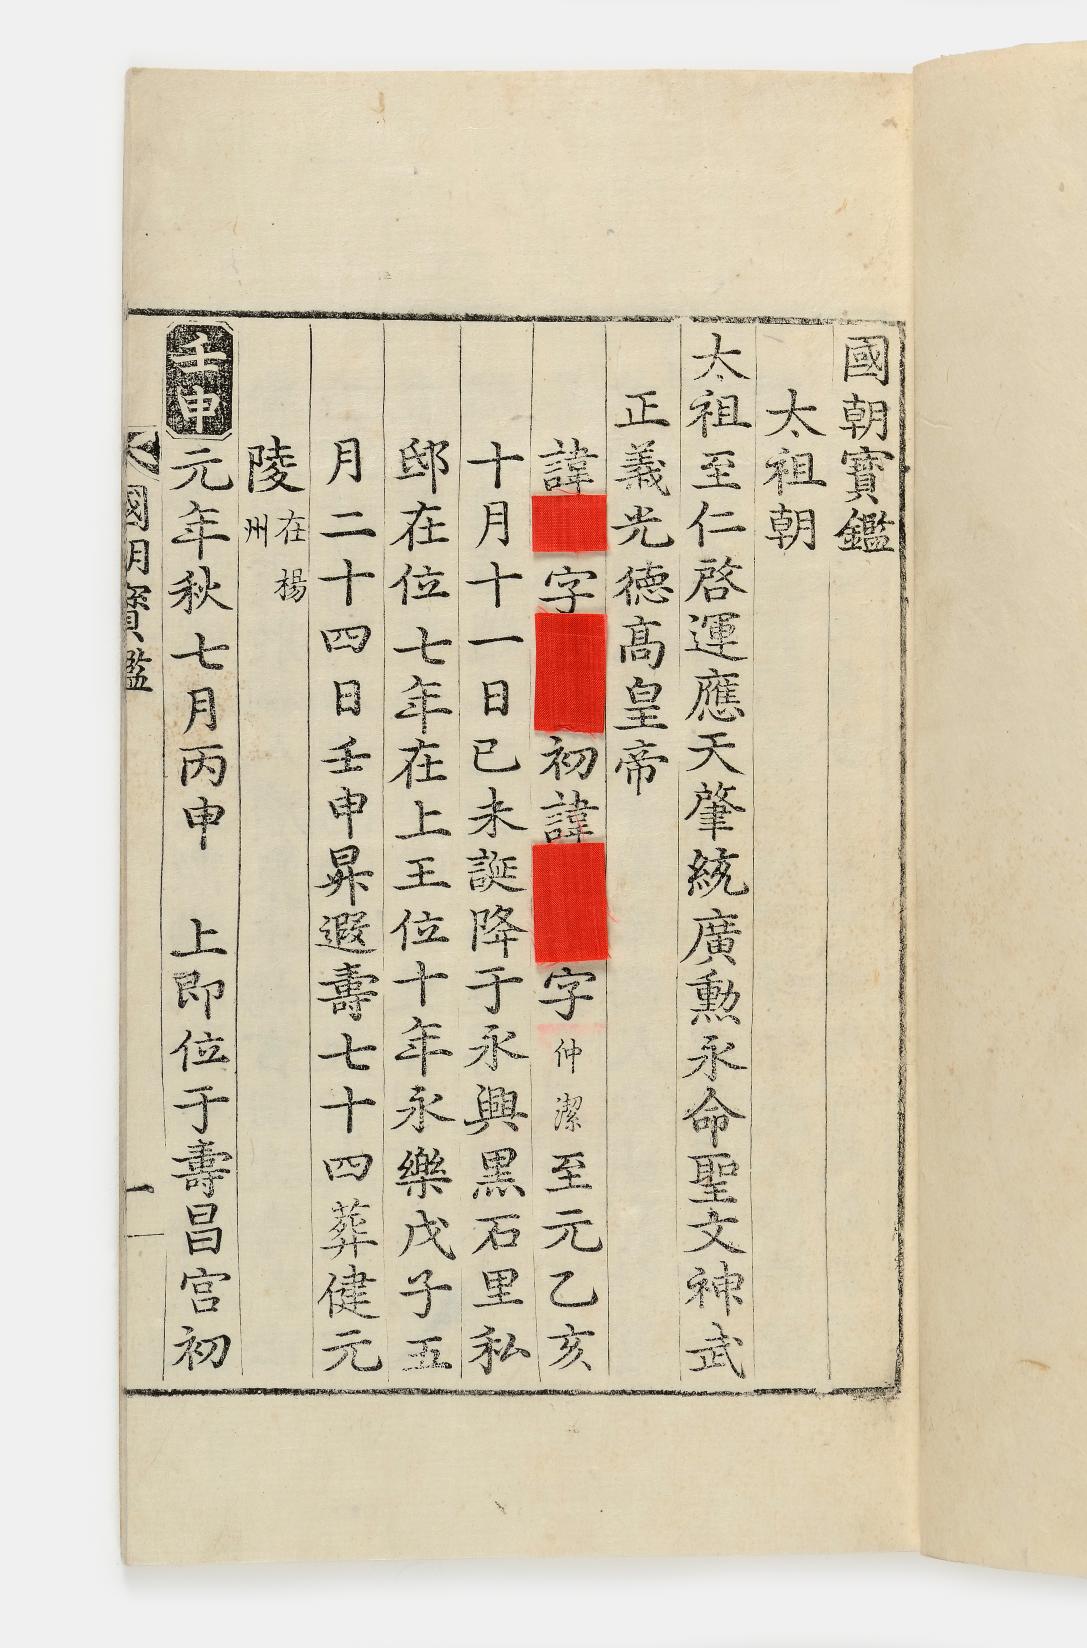 國朝寶鑑
太祖朝
太祖至仁啓運應天肇統廣勲永命聖文神武
正義光德高皇帝
諱字初諱字仲潔至元乙亥
十月十一日已未誕降于永興黒石里私
邸在位七年在上王位十年永樂戊子五
月二十四日壬申昇遐壽七十四葬健元
陵在楊州
壬申元年秋七月丙申 上即位于壽昌宮初
國朝寶鑑 一